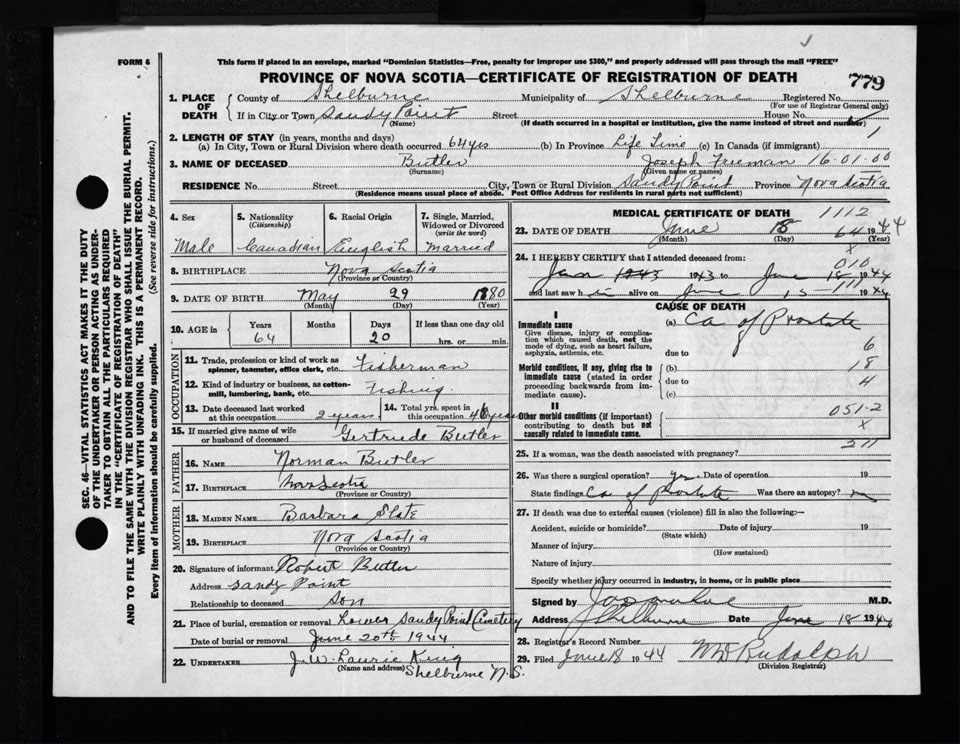 FORM 6
This form if placed in an envelope, marked "Dominion Statistics—Free, penalty for improper use $300," and properly addressed will pass through the mail "FREE"
PROVINCE OF NOVA SCOTIA—CERTIFICATE OF REGISTRATION OF DEATH
779
1. PLACE OF DEATH
County of Shelburne Municipality of Shelburne Registered No.
(For use of Registrar General only)
If in City or Town Sandy Point Street House No.
(Name) (If death occurred in a hospital or institution, give the name instead of street and number)
2. LENGTH OF STAY (in years, months and days)
(a) In City, Town or Rural Division where death occurred 64 yrs (b) In Province Life Time (c) In Canada (if immigrant) 1
3. NAME OF DECEASED Butler Joseph Freeman 16.01.00
(Surname) (Given name or names)
RESIDENCE No. Street City, Town or Rural Division Sandy Point Province Nova Scotia
(Residence means usual place of abode. Post Office Address for residents in rural parts not sufficient)
4. Sex
Male
5. Nationality
(Citizenship)
Canadian
6. Racial Origin
English
7. Single, Married, Widowed or Divorced
(write the word)
married
8. BIRTHPLACE Nova Scotia
(Province or Country)
9. DATE OF BIRTH May 29 1880
(Month) (Day) (Year)
10. AGE in
Years Months Days If less than one day old
64 20 hrs. or min.
OCCUPATION
11. Trade, profession or kind of work as spinner, teamster, office clerk, etc. Fisherman
12. Kind of industry or business, as cotton-mill, lumbering, bank, etc. Fishing
13. Date deceased last worked at this occupation 2 years
14. Total yrs. spent in this occupation 46 years
15. If married give name of wife or husband of deceased Gertrude Butler
FATHER
16. NAME Norman Butler
17. BIRTHPLACE Nova Scotia
(Province or Country)
MOTHER
18. MAIDEN NAME Barbara Slate
19. BIRTHPLACE Nova Scotia
(Province or Country)
20. Signature of informant Robert Butler
Address Sandy Point
Relationship to deceased Son
21. Place of burial, cremation or removal Lower Sandy Point Cemetery
Date of burial or removal June 20th 1944
22. UNDERTAKER J. W. Laurie King
(Name and address) Shelburne N.S.
MEDICAL CERTIFICATE OF DEATH 1112
23. DATE OF DEATH June 18 1944
(Month) (Day) (Year)
64
x
24. I HEREBY CERTIFY that I attended deceased from: 010
Jan 1943 1943 to June 18 1944
and last saw h im alive on June 15 1944
111
CAUSE OF DEATH
I
Immediate cause
Give disease, injury or complication which caused death, not the mode of dying, such as heart failure, asphyxia, asthenia, etc.
(a) Ca of Prostate
due to 6
Morbid conditions, if any, giving rise to immediate cause (stated in order proceeding backwards from immediate cause).
(b) 18
due to 4
(c)
II
Other morbid conditions (if important) contributing to death but not causally related to immediate cause.
051-2
x
211
25. If a woman, was the death associated with pregnancy?
26. Was there a surgical operation? yes Date of operation 19
State findings Ca of Prostate Was there an autopsy? no
27. If death was due to external causes (violence) fill in also the following:—
Accident, suicide or homicide? Date of injury 19
(State which)
Manner of injury
(How sustained)
Nature of injury
Specify whether injury occurred in industry, in home, or in public place
Signed by M.D.
Address Shelburne Date June 18 1944
28. Registrar's Record Number
29. Filed June 18 1944 Rudolph
(Division Registrar)
SEC. 46—VITAL STATISTICS ACT MAKES IT THE DUTY
OF THE UNDERTAKER OR PERSON ACTING AS UNDER-
TAKER TO OBTAIN ALL THE PARTICULARS REQUIRED
IN THE "CERTIFICATE OF REGISTRATION OF DEATH"
AND TO FILE THE SAME WITH THE DIVISION REGISTRAR WHO SHALL ISSUE THE BURIAL PERMIT.
WRITE PLAINLY WITH UNFADING INK. THIS IS A PERMANENT RECORD.
Every item of information should be carefully supplied. (See reverse side for instructions.)